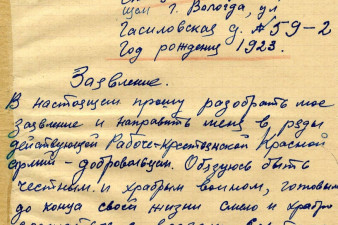 щем г. Вологда, ул
Гасиловская д. №59-2
Год рождения 1923.
Заявление.
В настоящим прошу разобрать мое
заявление и направить меня в ряды
действующей Рабоче-Крестьянской Красной
армии - добровольцем. Обязуюсь быть
честным и храбрым воином, готовым
до конца своей жизни смело и храбро